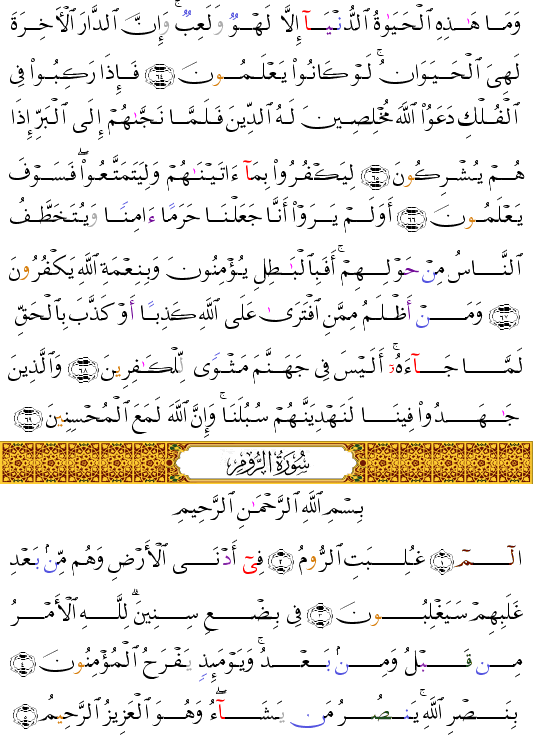 وَمَا هَٰذِهِ ٱلْحَيَوٰةُ ٱلدُّنْيَآ إِلَّا لَهْوٌ وَلَعِبٌ ۚ وَإِنَّ ٱلدَّارَ ٱلْءَاخِرَةَ
لَهِىَ ٱلْحَيَوَانُ ۚ لَوْ كَانُوا۟ يَعْلَمُونَ ﴿٦٤﴾ فَإِذَا رَكِبُوا۟ فِى
ٱلْفُلْكِ دَعَوُا۟ ٱللَّهَ مُخْلِصِينَ لَهُ ٱلدِّينَ فَلَمَّا نَجَّىٰهُمْ إِلَى ٱلْبَرِّ إِذَا
هُمْ يُشْرِكُونَ ﴿٦٥﴾ لِيَكْفُرُوا۟ بِمَآ ءَاتَيْنَٰهُمْ وَلِيَتَمَتَّعُوا۟ ۖ فَسَوْفَ
يَعْلَمُونَ ﴿٦٦﴾ أَوَلَمْ يَرَوْا۟ أَنَّا جَعَلْنَا حَرَمًا ءَامِنًا وَيُتَخَطَّفُ
ٱلنَّاسُ مِنْ حَوْلِهِمْ ۚ أَفَبِٱلْبَٰطِلِ يُؤْمِنُونَ وَبِنِعْمَةِ ٱللَّهِ يَكْفُرُونَ
﴿٦٧﴾ وَمَنْ أَظْلَمُ مِمَّنِ ٱفْتَرَىٰ عَلَى ٱللَّهِ كَذِبًا أَوْ كَذَّبَ بِٱلْحَقِّ
لَمَّا جَآءَهُۥٓ ۚ أَلَيْسَ فِى جَهَنَّمَ مَثْوًى لِّلْكَٰفِرِينَ ﴿٦٨﴾ وَٱلَّذِينَ
جَٰهَدُوا۟ فِينَا لَنَهْدِيَنَّهُمْ سُبُلَنَا ۚ وَإِنَّ ٱللَّهَ لَمَعَ ٱلْمُحْسِنِينَ ﴿٦٩﴾
سُورَةُ الرُّومِ
بِسْمِ ٱللَّهِ ٱلرَّحْمَٰنِ ٱلرَّحِيمِ
الٓمٓ ﴿١﴾ غُلِبَتِ ٱلرُّومُ ﴿٢﴾ فِىٓ أَدْنَى ٱلْأَرْضِ وَهُم مِّنۢ بَعْدِ
غَلَبِهِمْ سَيَغْلِبُونَ ﴿٣﴾ فِى بِضْعِ سِنِينَ ۗ لِلَّهِ ٱلْأَمْرُ
مِن قَبْلُ وَمِنۢ بَعْدُ ۚ وَيَوْمَئِذٍ يَفْرَحُ ٱلْمُؤْمِنُونَ ﴿٤﴾
بِنَصْرِ ٱللَّهِ ۚ يَنصُرُ مَن يَشَآءُ ۖ وَهُوَ ٱلْعَزِيزُ ٱلرَّحِيمُ ﴿٥﴾